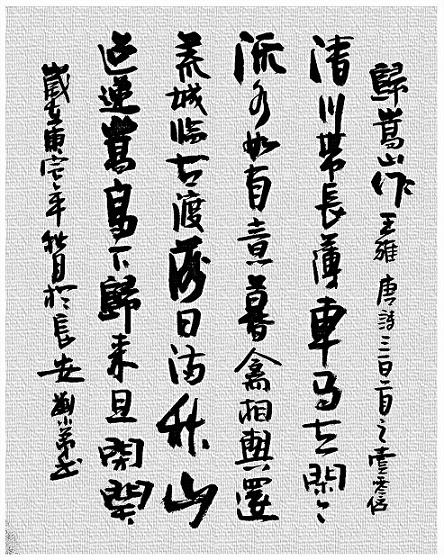 歸嵩山作 王維 唐詩三百首之壹零
清川帶長薄車馬去閑々
流水如有意暮禽相與還
荒城临古渡落日满秋山
迢递嵩高下歸来且閉關
歲在庚寅年秋月於長安 劉小